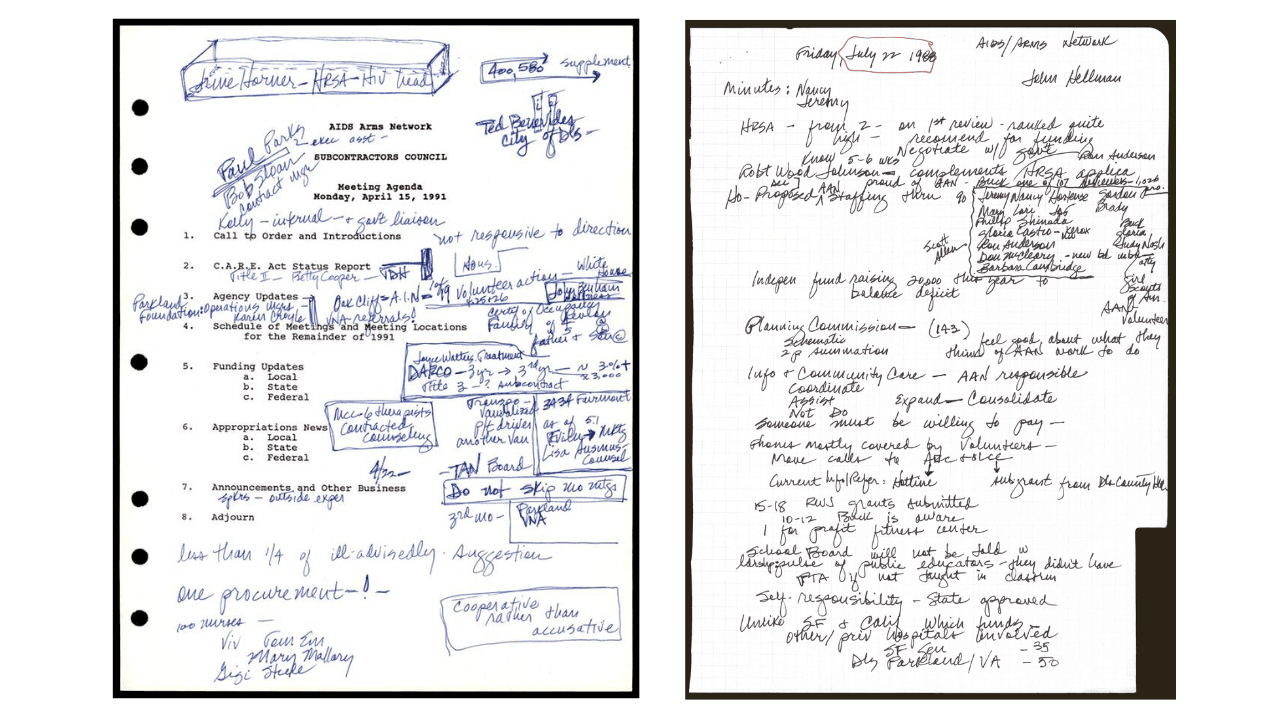 June Horner - HRSA - HIV head
400,580 supplement
Ted Benavides
city of Dls -
AIDS Arms Network
Paul Parks
exec asst -
SUBCONTRACTORS COUNCIL
Bob Sloan
contract mgr
Meeting Agenda
Monday, April 15, 1991
Kelly - internal - + gov't liaison
1. Call to Order and Introductions
not responsive to direction
Hous
2. C.A.R.E. Act Status Report
Title II - Betty Cooper - TDH
3. Agency Updates
Oak Cliff = A.I.N =
Volunteer action - White House
Parkland
Foundation: Operations mgrs
VNA referrals!
$25+26
certy of Occupancy
4. Schedule of Meetings and Meeting Locations
for the Remainder of 1991
Father & Son
5. Funding Updates
a. Local
b. State
c. Federal
Joyce Watters, Treatment
DARCO - 3 yr → 3rd yr - ~ 3%+
x 3,000
Title 3 - ? subcontract
Mcc - 6 therapists
contracted
counseling
Transpo -
p/t driver
another van
3434 Fairmont
as of 5/1
Lisa
Counsel
6. Appropriations News
a. Local
b. State
c. Federal
4/22 - - TAN Board
7. Announcements and Other Business
spkrs - outside exper
Do not skip mo mtgs
3rd mo - Parkland
VNA
8. Adjourn
less than 1/4 of ill-advisedly. Suggestion
one procurement - ! -
100 nurses -
Viv Tom Em
Mary Mallory
Gigi Steele
Cooperative
rather than
accusative
Friday, July 22 1988
AIDS/ARMS Network
John Hellman
Minutes: Nancy
Jeremy
HRSA - from 2 - on 1st review - ranked quite
high - recomend for funding
Negotiate w/ govt
Know 5-6 wks
Ron Anderson
Robt Wood Johnson - complements HRSA applica
proud of AAN - Buck one of 107 reviewers - 1,026 pro.
Proposed AAN Staffing thru 90
Jeremy Nancy Hortense Gordon
Mary Lori Brady
Phillip Shinoda
Gloria Castro - Xerox
Buck
Gloria
Ron Anderson
Judy Nash
Scott Allen
Don McCleary - new bd mbr
atty
Barbara Cambridge
Indepen fund raising 20,000 this year to
balance deficit
Girl
Scouts
of Am.
AAN
Volunteer
Planning Commission - (143)
Schematic
2p summation
feel good about what they
think of AAN work to do
Info & Community Care - AAN responsible
Coordinate
Assist Expand - Consolidate
Not Do
Someone must be willing to pay -
Phones mostly covered by Volunteers -
Move calls to ARC + OLCC
Current Info/Refer: Hotline
subgrant from Dls County
15-18 RWJ grants submitted
10-12 Buck is aware
1 for profit fitness center
School Board will not be told w
large pulse of public educators - they didn't have
PTA if not taught in classrm
Self-responsibility - State approved
Unlike SF & Calif which funds -
other/priv hospitals involved
SF Gen - 35
Dls Parkland/VA - 50